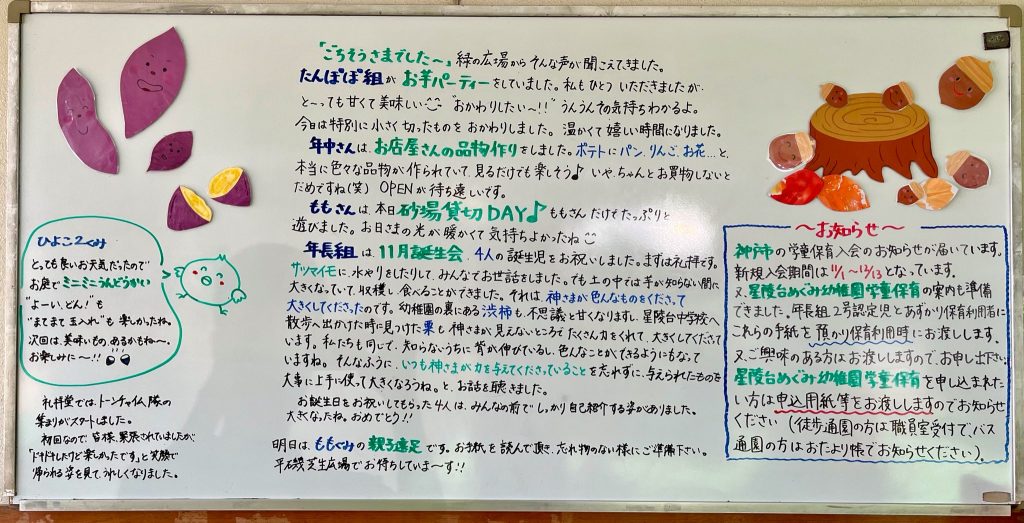 「ごちそうさまでした〜」緑の広場からそんな声が聞こえてきました。
たんぽぽ組がお芋パーティーをしていました。私もひとついただきましたが、
と〜っても甘くて美味しい “おかわりしたい〜!!” うんうんその気持ちわかるよ。
今日は特別に小さく切ったものをおかわりしました。温かくて嬉しい時間になりました。
年中さんは、お店屋さんの品物作りをしました。ポテトにパン、りんご、お花…と、
本当に色々な品物が作られていて、見るだけでも楽しそう♪ いや、ちゃんとお買物しないと
だめですね(笑) OPENが待ち遠しいです。
ももさんは、本日砂場貸切DAY♪ ももさんだけでたっぷりと
遊びました。お日さまの光が暖かくて気持ちよかったね
年長組は11月誕生会。4人の誕生児をお祝いしました。まずは礼拝です。
サツマイモに、水やりをしたりして、みんなでお世話をしました。でも土の中では手が知らない間に
大きくなっていて、収穫し、食べることができました。それは、神さまが色んなものをくださって
大きくしてくださったのです。幼稚園の裏にある渋柿も、不思議と甘くなりますし、星陵台中学校へ
散歩へ出かけた時に見つけた栗も神さまが見えないところでたくさん力をくれて、大きくしてください
ます。私たちも同じで、知らないうちに背が伸びているし、色んなことができるようにもなって
いますね。そんなふうに、いつも神さまが力を与えてくださっていることを忘れずに、与えられたものを
大事に上手に使って大きくなろうね。と、お話を聴きました。
お誕生日をお祝いしてもらった4人は、みんなの前でしっかり自己紹介する姿がありました。
大きくなったね。おめでとう!!
明日は、ももぐみの親子遠足です。お手紙を読んで頂き、忘れ物のない様にご準備下さい。
平磯芝生広場でお待ちしていま〜す!!
ひよこ2くみ
とっても良いお天気だったので
お庭でミニミニうんどうかい
“よーい、どん!”も
“まてまて玉入れ”も楽しかったね。
次回は、美味しいもの、あるかもね〜。
お楽しみに〜!!
礼拝堂では、トーンチャイム隊の
集まりがスタートしました。
初回なので、皆様、緊張されていましたが、
「ドキドキしたけど楽しかったです」と笑顔で
帰られる姿を見て、うれしくなりました。
〜お知らせ〜
神戸市の学童保育入会のお知らせが届いています。
新規入会期間は11/1〜12/13となっています。
又、星陵台めぐみ幼稚園学童保育の案内も準備
できました。年長組、2号認定児とあずかり保育利用者に
これらの手紙を預かり保育利用時にお渡します。
又、ご興味のある方はお渡しますので、お申し出下さい。
星陵台めぐみ幼稚園学童保育を申し込まれた
い方は申込用紙等をお渡ししますのでお知らせ
ください(徒歩通園の方は職員室受付で、バス
通園の方はおたより帳でお知らせください)。